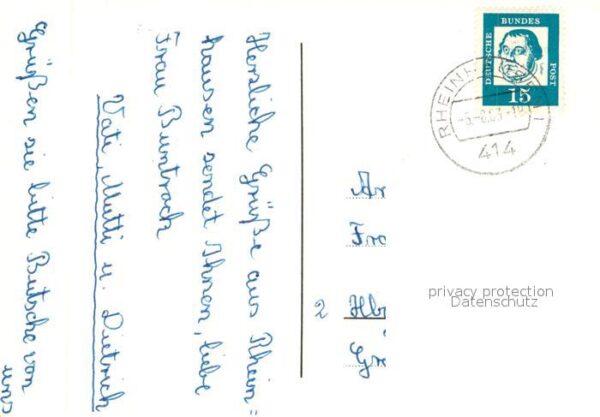 Herzliche Grüße aus Rhein=
hausen sendet Ihnen, liebe
Frau Buntrock
Vati, Mutti u. Dietrich
Grüßen sie bitte Butsche von
uns
DEUTSCHE BUNDES POST
15
RHEINH
414
An
Fra
2 Hbr
Gr
privacy protection
Datenschutz